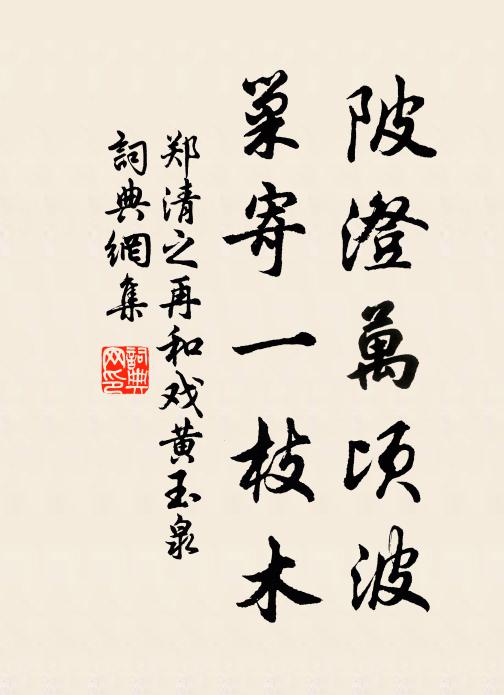 陂澄萬頃波
巢寄一枝木
郑清之再和戏黄玉泉
詞典網集
詞典
网印